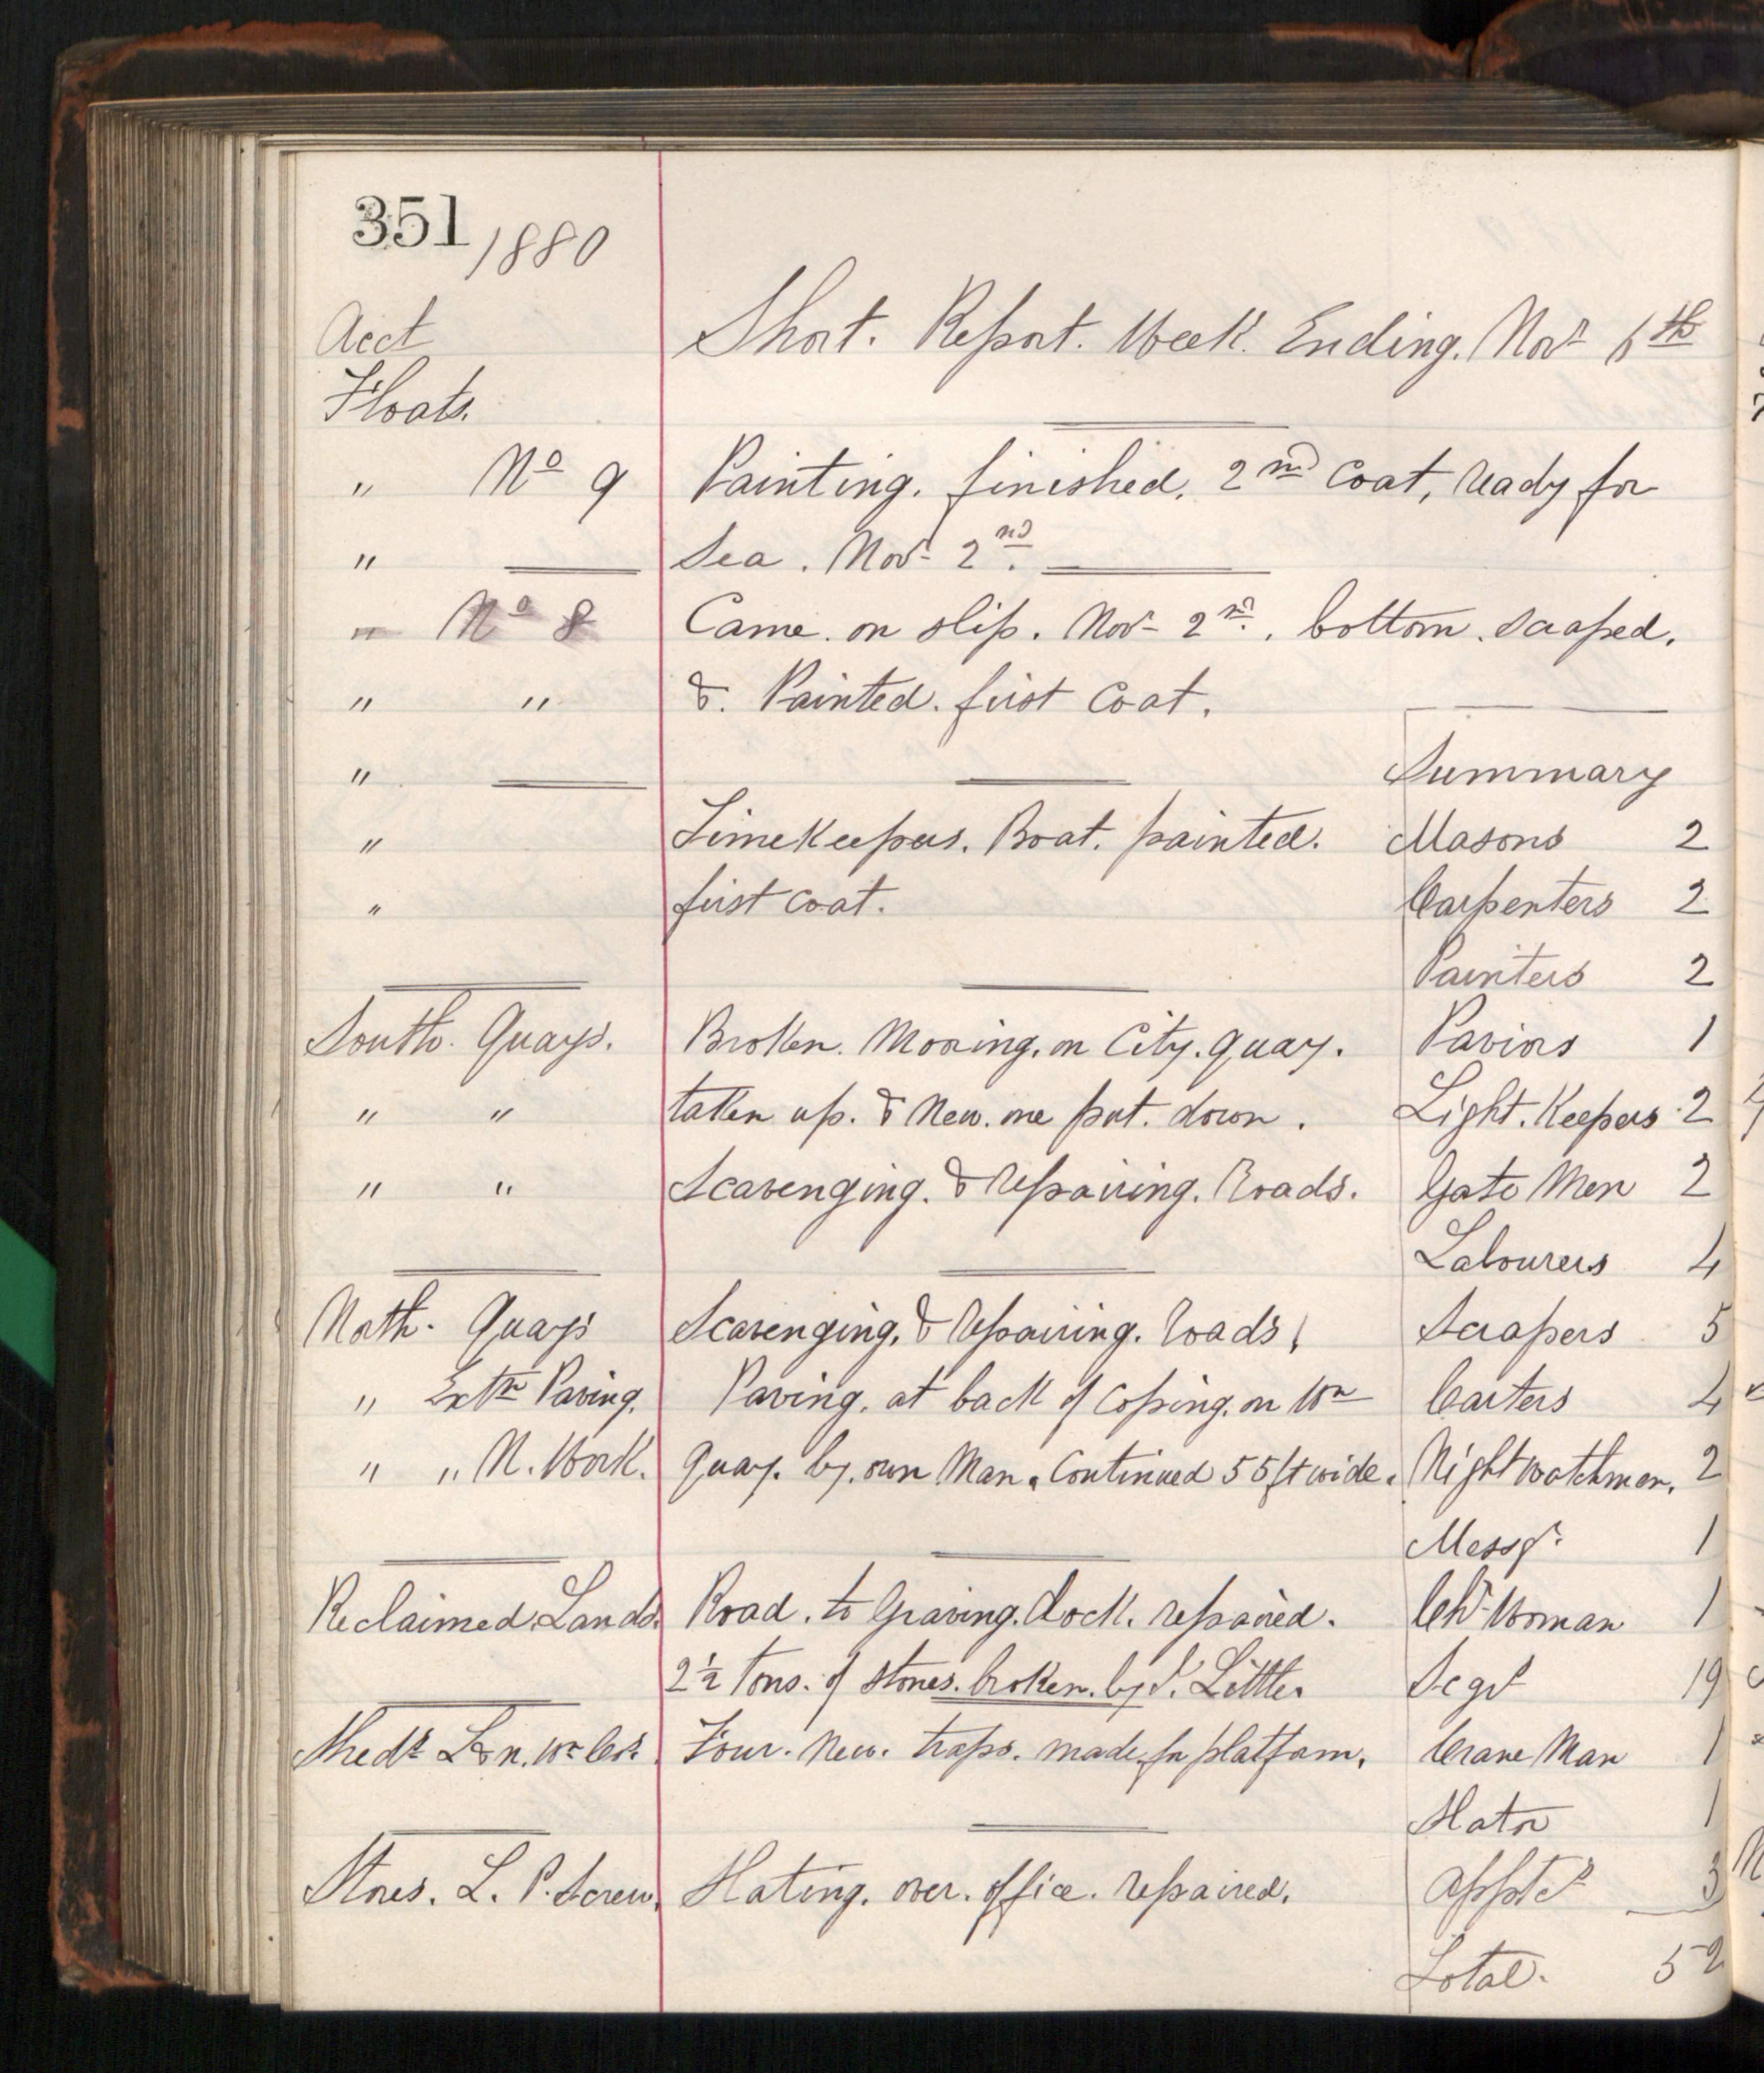 351 1880
Acct Short. Report. Week. Ending. Novr 6th
Floats.
" No 9 Painting. finished. 2nd Coat, ready for
" Sea. Novr 2nd.
" No 8 Came. on slip. Novr 2nd. bottom. scraped.
" " & Painted. first Coat.
" Summary
" TimeKeepers. Boat. painted. Masons 2
" first coat. Carpenters 2
Painters 2
South. Quays. Broken. Mooring. on City. Quay. Paviors 1
" " taken up. & New. one put. down. Light. Keepers 2
" " Scavenging. & repairing. Roads. Gate Men 2
Labourers 4
North. Quays Scavenging. & repairing. roads. Scrapers 5
" Extn Paving. Paving. at back of Coping. on Wn Carters 4
" " N. Work. Quay. by. own Man. Continued 55 ft wide. Night watchmen. 2
Messgr. 1
Reclaimed. Lands. Road. to Graving. dock. repaired. Woman 1
2½ tons. of stones. broken. by Little. 19
Four. New. traps. made for platform. Crane Man 1
Slater 1
Stores. L. P. Screw. Slating. over. office. repaired. 3
Total. 52